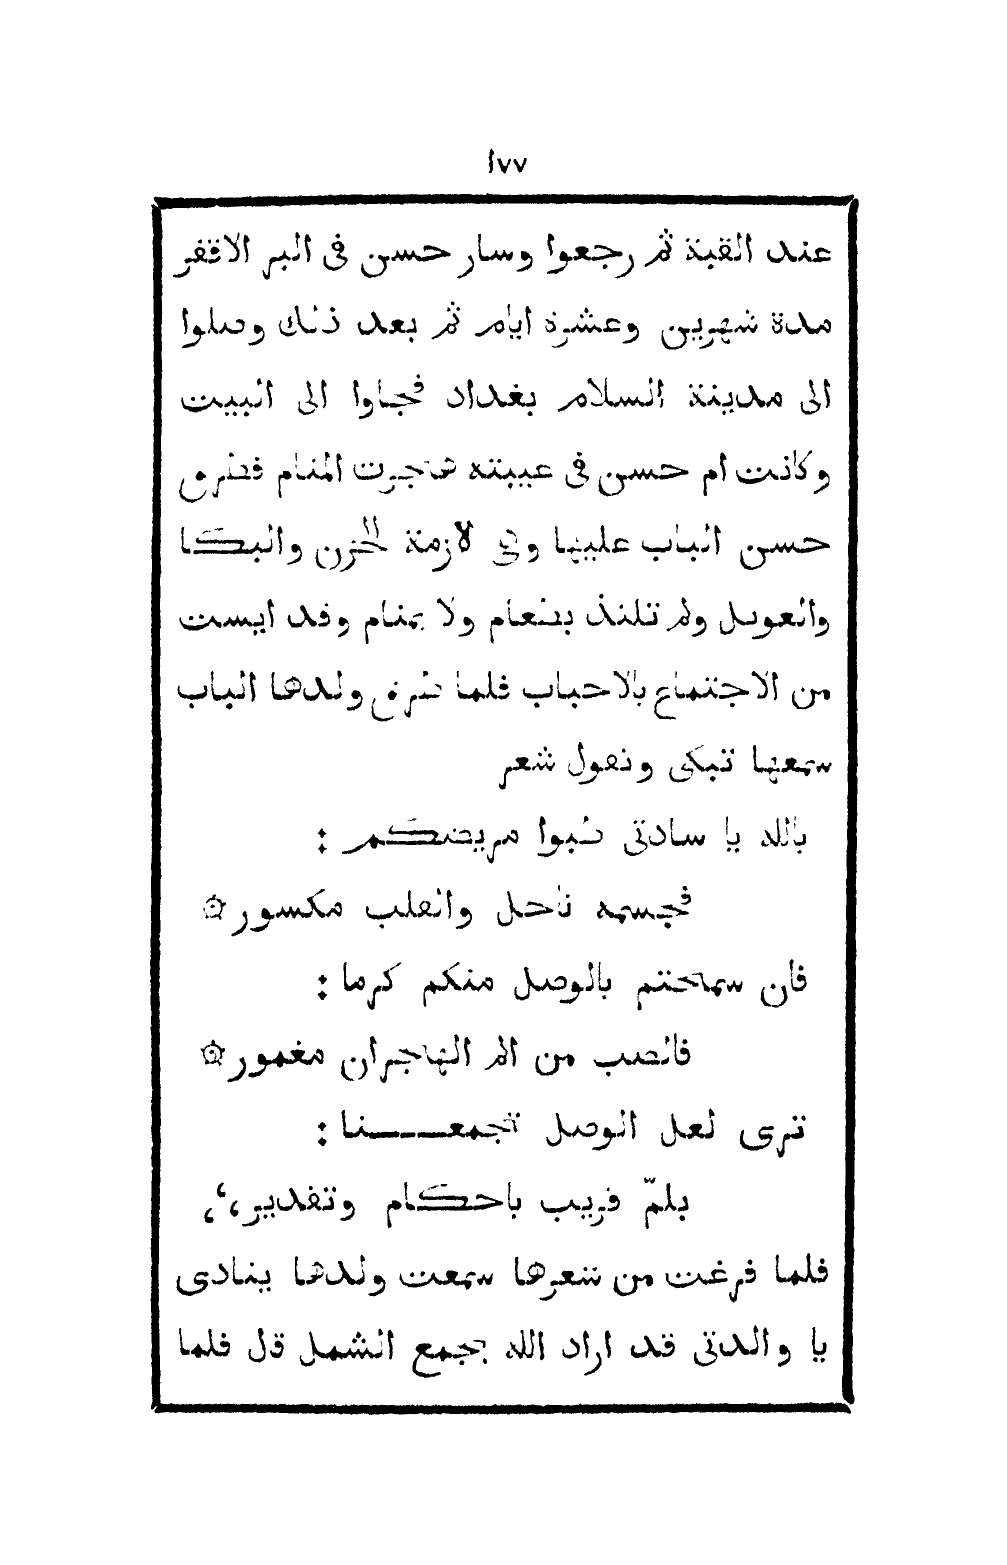 ١٧٧
عند القبة ثم رجعوا وسار حسن فى البر الاقفر
مدة شهرين وعشرة ايام ثم بعد ذلك وصلوا
الى مدينة السلام بغداد فجاوا الى البيت
وكانت ام حسن فى غيبته هاجرت المنام فطرق
حسن الباب عليها وهى لازمة الحزن والبكا
والعويل ولم تلتذ بطعام ولا بمنام وقد ايست
من الاجتماع بالاحباب فلما طرق ولدها الباب
سمعها تبكى وتقول شعر
بالله يا سادتى طبوا مريضكم :
فجسمه ناحل والقلب مكسور ۞
فان سمحتم بالوصل منكم كرما :
فالصب من الم الهاجران مغمور ۞
ترى لعل الوصل تجمعنا :
بلمّ قريب باحكام وتقدير،،
فلما فرغت من شعرها سمعت ولدها ينادى
يا والدتى قد اراد الله بجمع الشمل قل فلما